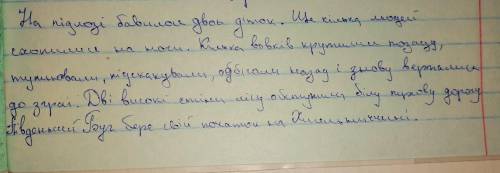 На підлозі бавилось двоє діток. Ще кілька людей
схопились на ноги. Кілька вовків крутились позаду,
тупцювали, підскакували, одбігали назад і знову вертались
до зграї. Дві високі стіни лісу обступили білу пухову дорогу
Південний Буг бере свій початок на Хмельниччині.